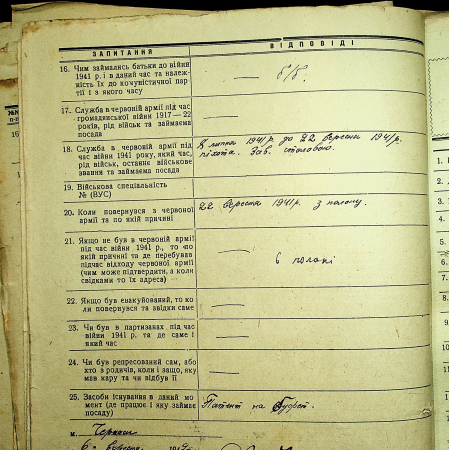 ЗАПИТАННЯ ВІДПОВІДІ
16. Чим займались батьки до війни
1941 р. і в даний час та належ-
ність їх до комуністичної пар-
тії і з якого часу
— б/п.
17. Служба в червоній армії під час
громадянської війни 1917—22
років, рід військ та займаєма
посада
—
18. Служба в червоній армії під
час війни 1941 року, який час,
рід військ, останнє військове
звання та займаєма посада
липня 1941 р. до 22 вересня 1941 р.
піхота. Зав. столовою.
19. Військова спеціальність
№ (ВУС)
—
20. Коли повернувся з червоної
армії та по якій причині
22 вересня 1941 р. з полону.
21. Якщо не був в червоній армії
під час війни 1941 р., то по
якій причині та де перебував
підчас відходу червоної армії
(чим може підтвердити, а коли
свідками то їх адреса)
в полоні
22. Якщо був евакуйований, то ко-
ли повернувся та звідки саме
—
23. Чи був в партизанах під час
війни 1941 р. та де саме і
який час
—
24. Чи був репресований сам, або
хто з родичів, коли і защо, яку
мав кару та чи відбув її
—
25. Засоби існування в даний мо-
мент (де працює і яку займає
посаду)
Патент на буфет.
м.
вересня